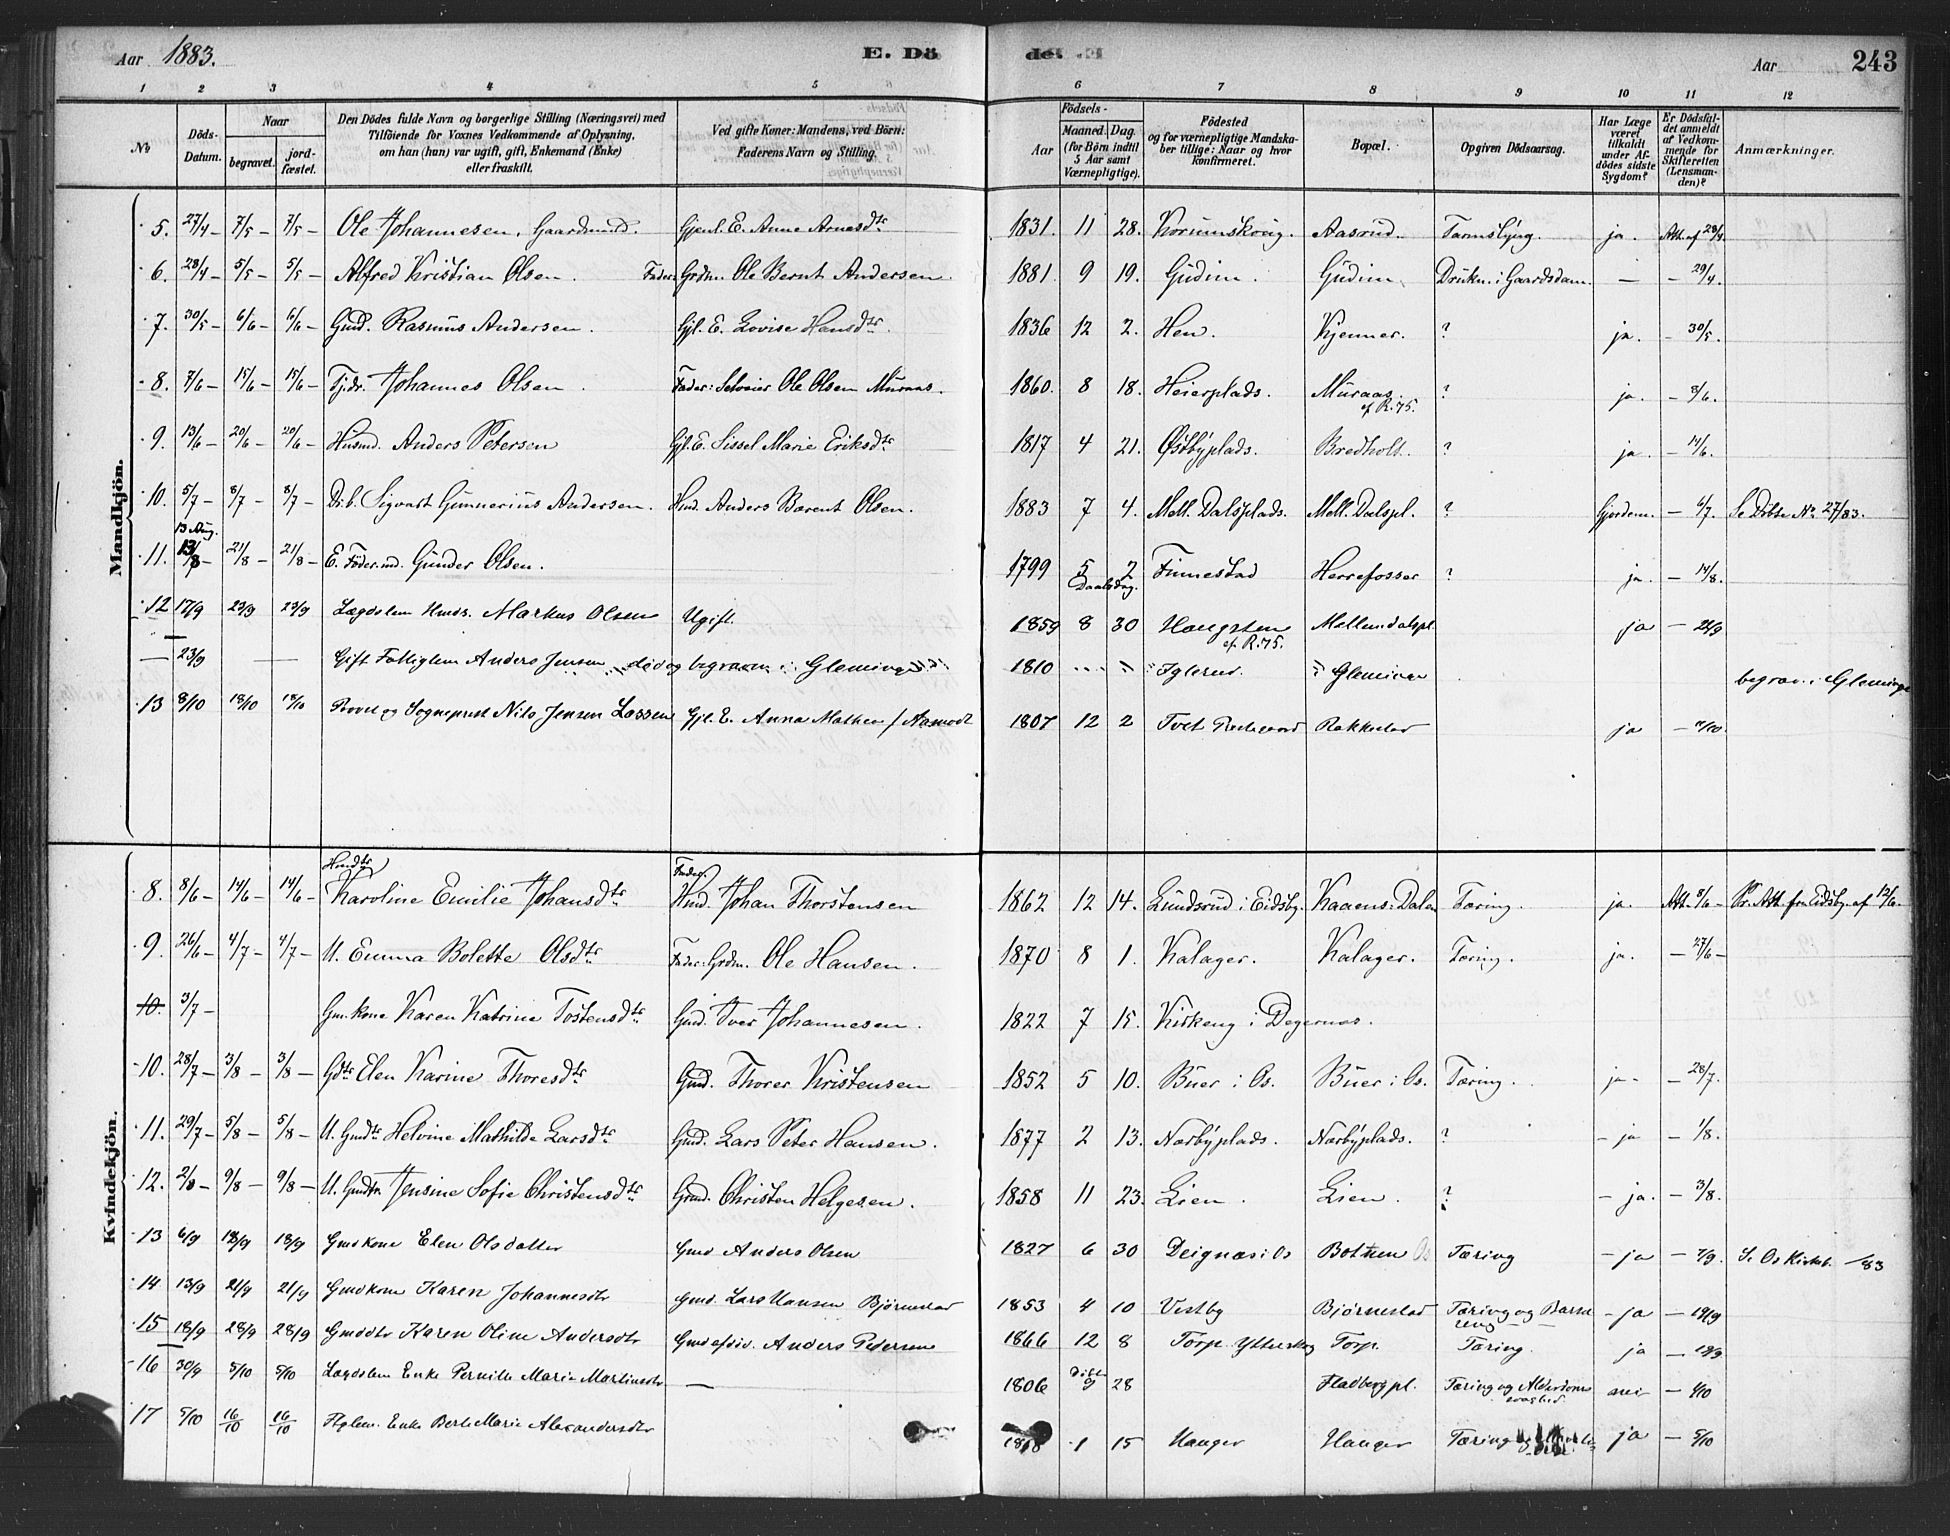 Aar 1883. E. Dö de. Aar 243
1 2 3 4 5 6 7 8 9 10 11 12
No Döds-Datum. Naar begravet. jordfæstet. Den Dödes fulde Navn og borgerlige Stilling (Næringsvei) med Tilföiende for Voxnes Vedkommende af Oplysning, om han (hun) var ugift, gift, Enkemand (Enke) eller fraskilt. Ved gifte Koner: Mandens, ved Börn: Faderens Navn og Stilling. Födsels- Aar Maaned. Dag. (for Börn indtil 5 Aar samt Værnepligtige). Födested og for værnepligtige Mandskaber tillige: Naar og hvor konfirmeret. Bopæl. Opgiven Dödsaarsag. Har Læge været tilkaldt under Afdödes sidste Sygdom? Er Dödsfaldet anmeldt af Vedkommende for Skifteretten (Lensmanden)? Anmærkninger.
Mandkjön.
5. 27/4 - 7/5 - 7/5 - Ole Johannesen, Gaardmand. Gjenl. E. Anne Arnesdtr 1831. 11 28. Korumskoug. Aasrud. Tarmslyng. ja. Att. af 28/4
6. 28/4 - 5/5 - 5/5 - Alfred Kristian Olsen. Fader Grdm. Ole Bernt Andersen. 1881. 9 19. Gudim. Gudim. Drukn. i Gaardsdam. - - 29/4.
7. 30/5 - 6/6 - 6/6 - Gmd. Rasmus Andersen. Gjl. E. Lovise Hansdtr. 1836 12 2. Hen. Kjenner. ? ja. - 30/5.
8. 7/6 - 15/6 - 15/6 - Tj.dr. Johannes Olsen. Fader: Selveier Ole Olsen Muraas. 1860. 8 18. Heierplads. Muraas. cf R. 75. ? ja. - 8/6.
9. 13/6 - 20/6 - 20/6 - Husmd. Anders Petersen Gjl. E. Sissel Marie Eriksdtr 1817 4 21. Østbyplads. Bredholt. ? ja. - 14/6.
10. 5/7 - 8/7 - 8/7 - Di. b. Sigvart Gunnerius Andersen. Hmd. Anders Bærent Olsen. 1883 7 4. Mell. Dalsplads. Mell. Dalspl. ? Gjordem. - 6/7. Se Döbte No 27/83.
13 Aug.
11. 13/8 - 21/8 - 21/8 - E. Föder.md. Gunder Olsen. 1799 5 2 Daabsdag. Finnestad Herrefosser ? ja - 14/8.
12 17/9 23/9 23/9 Lægdslem Hmds. Markus Olsen Ugift. 1859 8 30 Haugsten cf. R. 75. Mellemdalspl. ja - 22/9
- 23/9 - Gift Fattiglem Anders Jensen död og begraven i Gleminge 1810 Iglerud. Gleminge begrav. i Gleminge
13 8/10 18/10 18/10 Provst og Sogneprest Nils Jensen Lassen Gjl. E. Anna Mathea f. Aamodt 1807 12 2 Tvet Præstegaard Rakkestad ja - 9/10.
Kvindekjön.
8. 8/6 - 14/6 - 14/6 - Hmdtr Karoline Emilie Johansdtr Fader: Hmd. Johan Thorstensen 1862 12 14. Lundsrud i Eidsby. Kaaens: Dalen Tæring. ja. Att. 8/6 - Pr. Att. fra Eidsby. af 12/6.
9. 26/6 - 4/7 - 4/7 - U. Emma Bolette Olsdtr Fader: Grdm. Ole Hansen. 1870 8 1. Kalager. Kalager. Tæring. ja. - 27/6 -
10. 3/7 - Gm.kone Karen Katrine Tostensdtr Gmd. Iver Johannesen. 1822 7 15. Kirkeng i Degernes.
10. 28/7 - 3/8 - 3/8 - Gdtr Elen Karine Thoresdtr Gmd. Thorer Kristensen 1852 5 10. Buer i Os. Buer i Os. Tæring. ja - - 28/7.
11. 29/7 - 5/8 - 5/8 - U. Gmdtr Helvine Mathilde Larsdtr Gmd. Lars Peter Hansen. 1877 2 13. Nærbyplads. Nærbyplads. ? - ja - 1/8.
12. 2/8 - 9/8 - 9/8 - U. Gmdtr. Jensine Sofie Christensdtr Grmd. Christen Helgesen. 1858 11 23. Lien. Lien. ? - ja. - 3/8.
13 6/9 18/9 18/9 Gmdkone Elen Olsdatter Gmd Anders Olsen 1827 6 30 Deignæs i Os Botten Os Tæring - ja - 7/9. Se Os Kirkeb. /83
14 13/9 21/9 21/9 Gmdkone Karen Johannesdtr Gmd. Lars Hansen Bjørnestad 1853 4 10 Vestby Bjørnestad Tæring og Barselseng - ja - 19/9
15 18/9 28/9 28/9 Gmddtr Karen Oline Andersdtr Gmd afdöd. Anders Pedersen 1866 12 8 Torp Ytterskog Torp. Tæring. ja - 19/9
16 30/9 5/10 5/10 Lægdslem Enke Pernille Marie Martinsdtr - 1806 Döbt 9 28 Fladbergpl. Tæring og Alderdomssvaghed nei - 4/10
17 5/10 16/10 16/10 Ftglem. Enke Berte Marie Alexandersdtr 1818 1 15 Hauger Hauger Tæring ja - 5/10